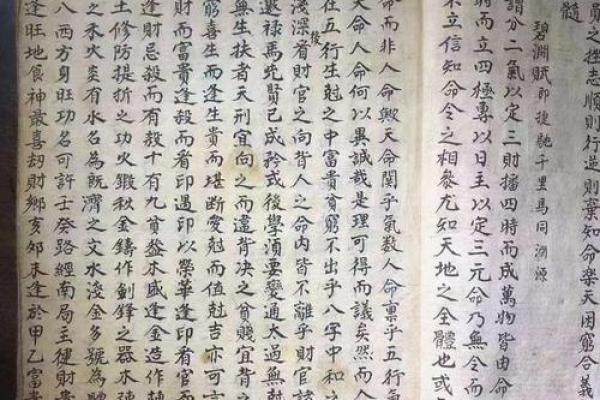 員之挫志順則行逆則棄知命樂天困窮合義
髓
碧淵賦即捷馳千里馬同淵源
謂分二氣以定三財播四時而成萬物皆由命
時而立四極專以日主以定三元命乃無令而
不立信知命令之相參尤知天地之全體也或
命而非人命歟天命關乎氣數人命稟乎五行氣
天命人命何以異誠哉是理可得而議矣然而人
在五行生尅之中富貴貧窮不出乎八字中和之
淺深後看財官之向背人之命内皆不離乎財官諸
邀祿馬先賢已成矜式後學須要變通太過無
無生扶者夭刑宜向之而違背决之貧賤宜背之
窮喜生而逢生貴而堪斷愛尅而值尅吉亦可
財而富貴逢殺而看印遇印以榮華逢印看官而
逢財忌殺而有殺十有九貧盖木盛逢金造作棟
土修防提折之功火鍛秋金鑄作劍鋒之器木
之禾火炎有水名為既濟之文水淺金多號為體
八西方身旺功名可許壬癸路經南局主健財貴
逢旺地食神最喜劫財鄉亥卯未逢於甲乙富貴